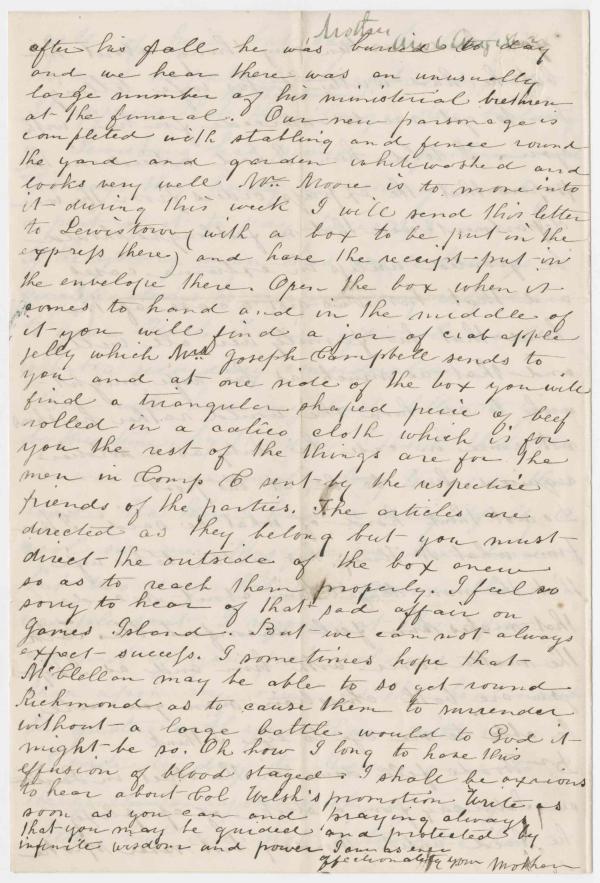 Mother
after his fall he was buried to day
and we hear there was an unusually
large number of his ministerial brethren
at the funeral. Our new parsonage is
completed with stabling and fence round
the yard and garden whitewashed and
looks very well Mr. Moore is to move into
it during this week I will send this letter
to Lewistown (with a box to be put in the
express there) and have the receipt put in
the envelope there. Open the box when it
comes to hand and in the middle of
it you will find a jar of crab apple
jelly which Mrs Joseph Campbell sends to
you and at one side of the box you will
find a triangular shaped peice of beef
rolled in a calico cloth which is for
you the rest of the things are for the
men in Comp C sent by the respective
friends of the parties. The articles are
directed as they belong but you must
direct the outside of the box anew
so as to reach them properly. I feel so
sorry to hear of that sad affair on
James Island. But we can not always
expect success. I sometimes hope that
McClellan may be able to so get round
Richmond as to cause them to surrender
without a large battle would to God it
might be so. Oh how I long to have this
effusion of blood stayed. I shall be axious
to hear about Col Welsh's promotion Write as
soon as you can and praying always
that you may be guided and protected by
infinite wisdom and power I am as ever
affectionately your Mother